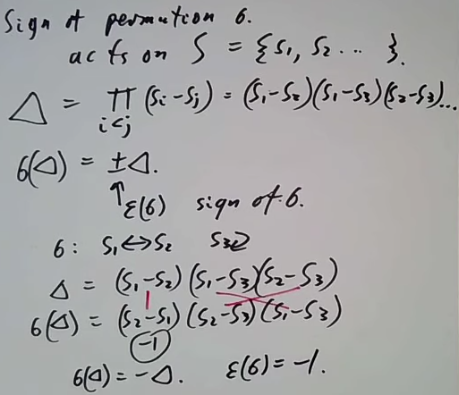 Sign of permution 6.
acts on S = {S₁, S₂ ... }.
Δ = ∏ (Sᵢ-Sⱼ) = (S₁-S₂)(S₁-S₃)(S₂-S₃)...
i<j
6(Δ) = ±Δ.
↑ε(6) sign of 6.
6: S₁↔S₂ S₃⊋
Δ = (S₁-S₂)(S₁-S₃)(S₂-S₃)
6(Δ) = (S₂-S₁)(S₂-S₃)(S₁-S₃)
-1
6(Δ) = -Δ. ε(6) = -1.